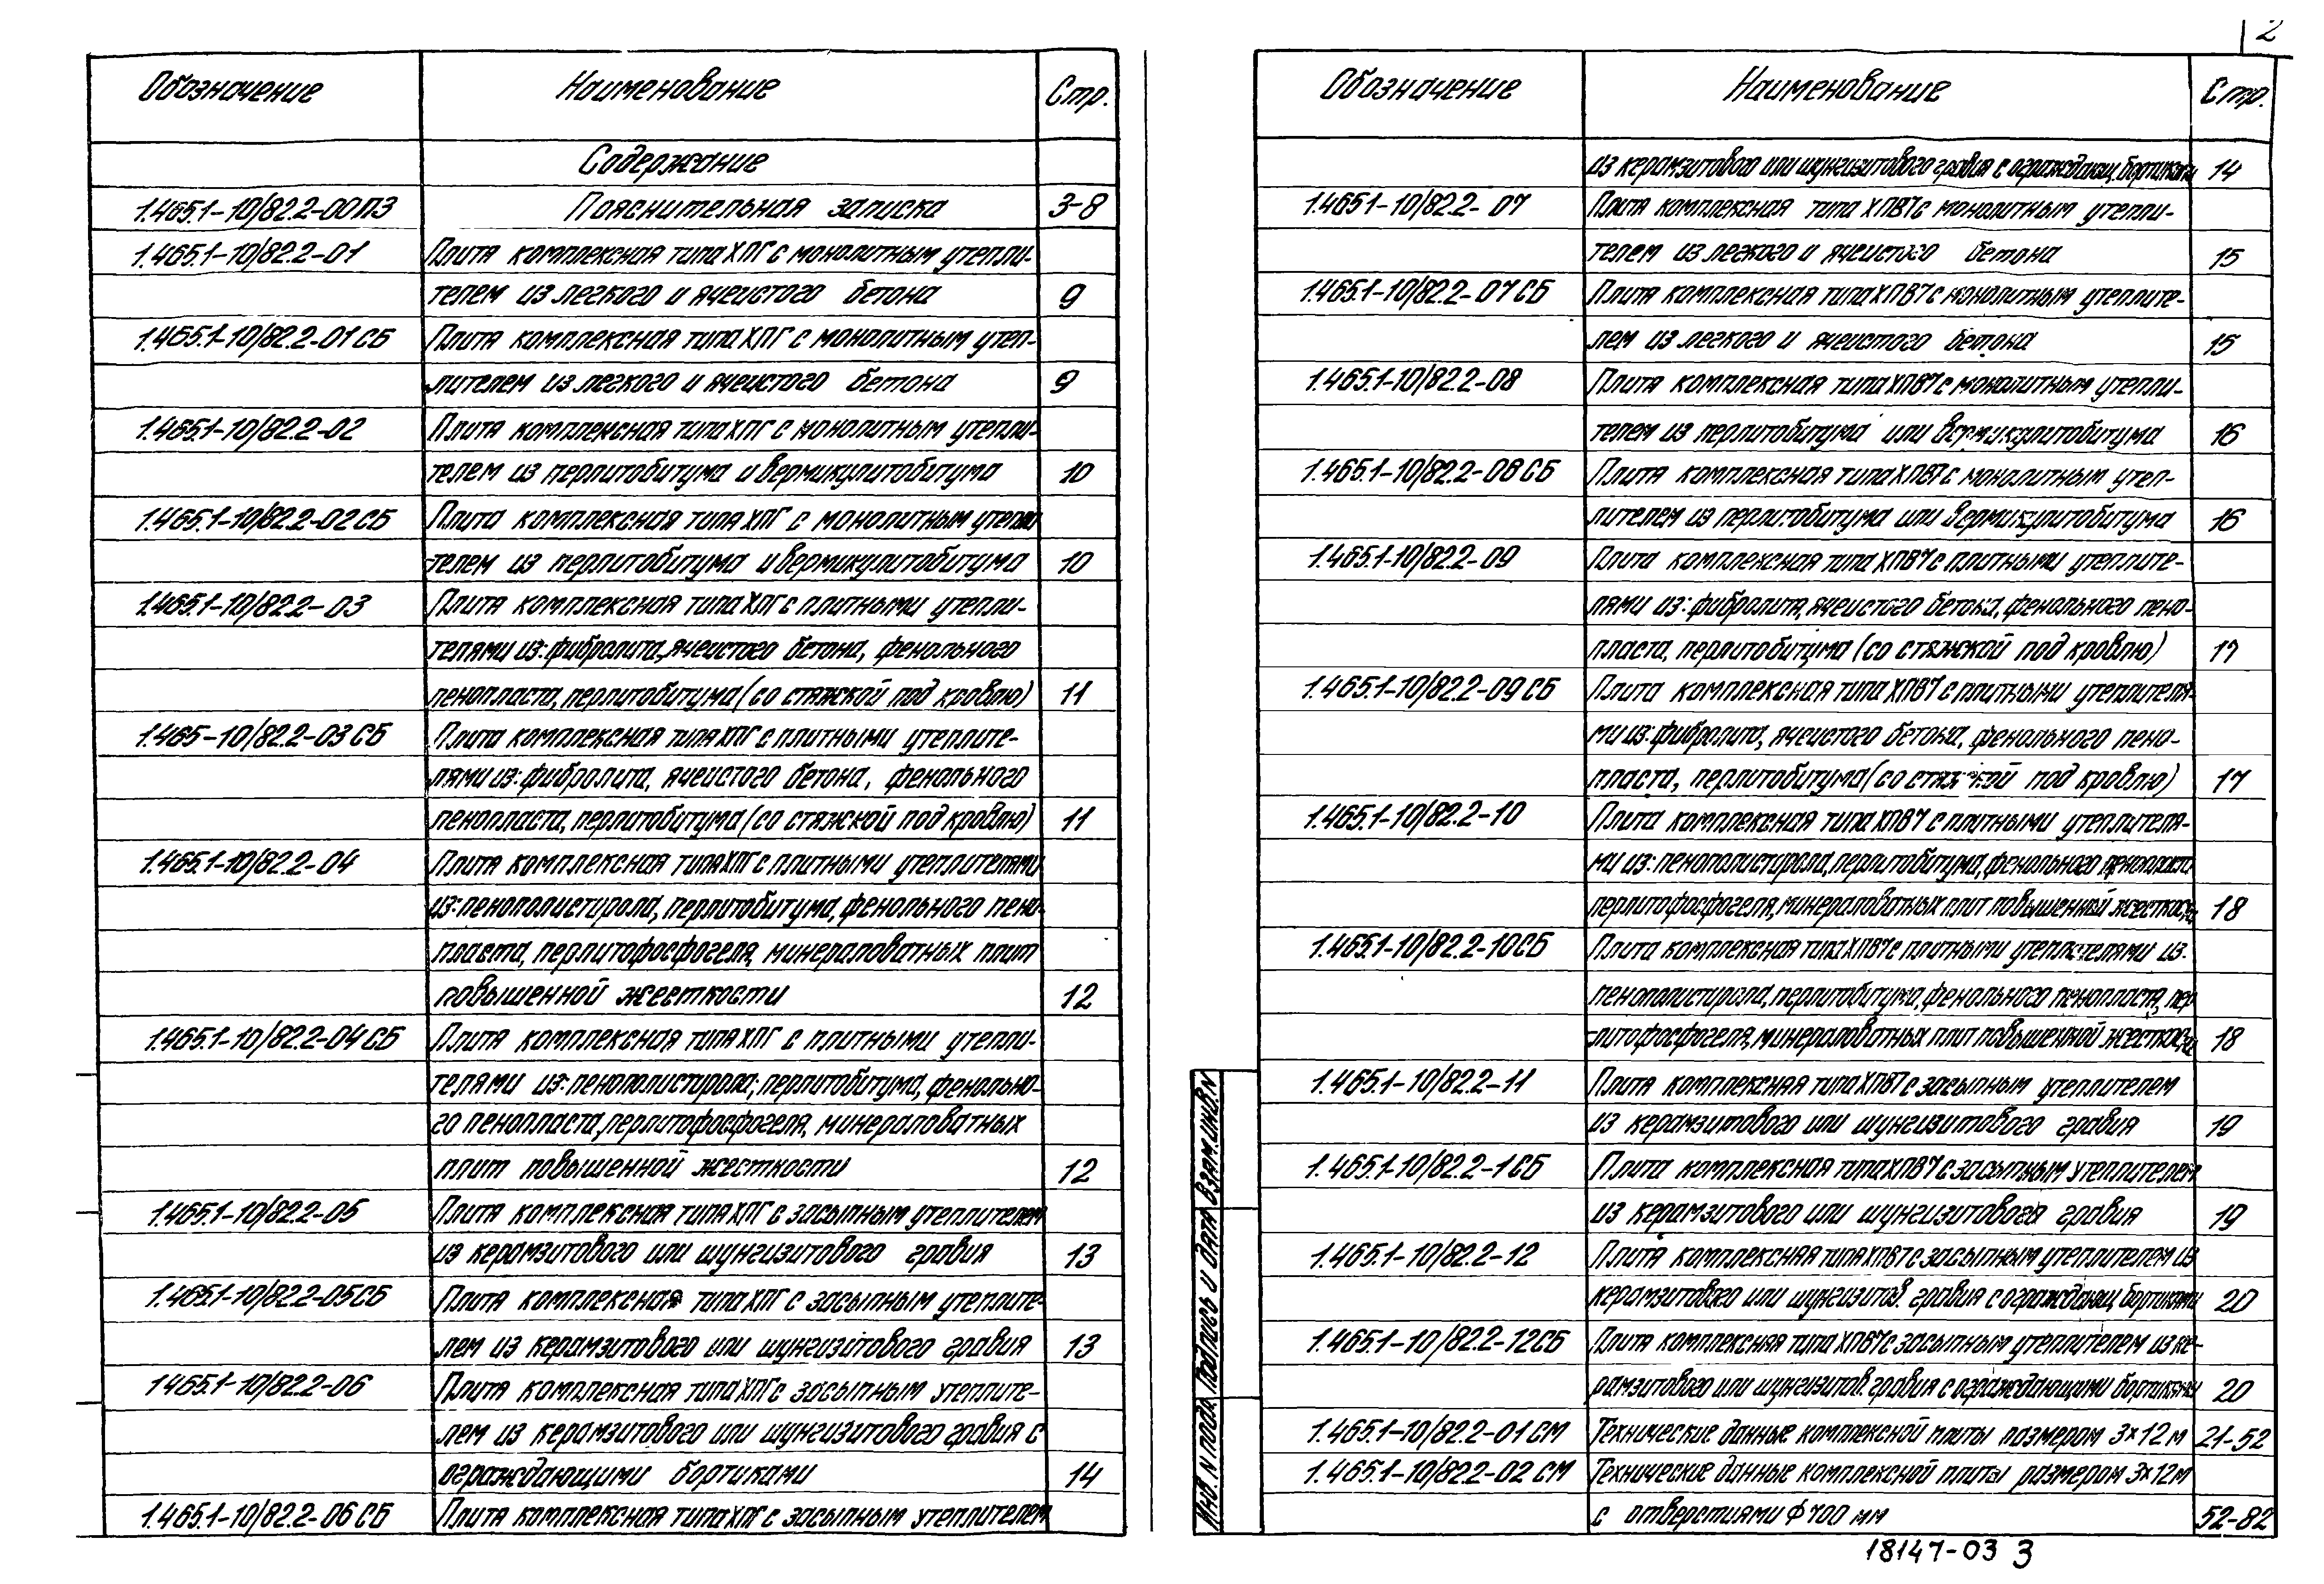 2
Обозначение Наименование Стр.
Содержание
1.465.1-10/82.2-00ПЗ Пояснительная записка 3-8
1.465.1-10/82.2-01 Плита комплексная типа ХПГ с монолитным утепли-
телем из легкого и ячеистого бетона 9
1.465.1-10/82.2-01СБ Плита комплексная типа ХПГ с монолитным утеп-
лителем из легкого и ячеистого бетона 9
1.465.1-10/82.2-02 Плита комплексная типа ХПГ с монолитным утепли-
телем из перлитобитума и вермикулитобитума 10
1.465.1-10/82.2-02СБ Плита комплексная типа ХПГ с монолитным утепли
телем из перлитобитума и вермикулитобитума 10
1.465.1-10/82.2-03 Плита комплексная типа ХПГ с плитными утепли-
телями из: фибролита, ячеистого бетона, фенольного
пенопласта, перлитобитума (со стяжкой под кровлю) 11
1.465-10/82.2-03СБ Плита комплексная типа ХПГ с плитными утеплите-
лями из: фибролита, ячеистого бетона, фенольного
пенопласта, перлитобитума (со стяжкой под кровлю) 11
1.465.1-10/82.2-04 Плита комплексная типа ХПГ с плитными утеплителями
из: пенополистирола, перлитобитума, фенольного пено-
пласта, перлитофосфогеля, минераловатных плит
повышенной жесткости 12
1.465.1-10/82.2-04СБ Плита комплексная типа ХПГ с плитными утепли-
телями из: пенополистирола; перлитобитума, фенольно-
го пенопласта, перлитофосфогеля, минераловатных
плит повышенной жесткости 12
1.465.1-10/82.2-05 Плита комплексная типа ХПГ с засыпным утеплителем
из керамзитового или шунгизитового гравия 13
1.465.1-10/82.2-05СБ Плита комплексная типа ХПГ с засыпным утеплите-
лем из керамзитового или шунгизитового гравия 13
1.465.1-10/82.2-06 Плита комплексная типа ХПГ с засыпным утеплите-
лем из керамзитового или шунгизитового гравия с
ограждающими бортиками 14
1.465.1-10/82.2-06СБ Плита комплексная типа ХПГ с засыпным утеплителем
Обозначение Наименование Стр.
из керамзитового или шунгизитового гравия с ограждающ. бортиками 14
1.465.1-10/82.2-07 Плита комплексная типа ХПВ7 с монолитным утепли-
телем из легкого и ячеистого бетона 15
1.465.1-10/82.2-07СБ Плита комплексная типа ХПВ7 с монолитным утеплите-
лем из легкого и ячеистого бетона 15
1.465.1-10/82.2-08 Плита комплексная типа ХПВ7 с монолитным утепли-
телем из перлитобитума или вермикулитобитума 16
1.465.1-10/82.2-08СБ Плита комплексная типа ХПВ7 с монолитным утеп-
лителем из перлитобитума или вермикулитобитума 16
1.465.1-10/82.2-09 Плита комплексная типа ХПВ7 с плитными утеплите-
лями из: фибролита, ячеистого бетона, фенольного пено-
пласта, перлитобитума (со стяжкой под кровлю) 17
1.465.1-10/82.2-09СБ Плита комплексная типа ХПВ7 с плитными утеплителя-
ми из: фибролита, ячеистого бетона, фенольного пено-
пласта, перлитобитума (со стяжкой под кровлю) 17
1.465.1-10/82.2-10 Плита комплексная типа ХПВ7 с плитными утеплителя-
ми из: пенополистирола, перлитобитума, фенольного пенопласта
перлитофосфогеля, минераловатных плит повышенной жесткости 18
1.465.1-10/82.2-10СБ Плита комплексная типа ХПВ7 с плитными утеплителями из:
пенополистирола, перлитобитума, фенольного пенопласта, пер
-литофосфогеля, минераловатных плит повышенной жесткости 18
1.465.1-10/82.2-11 Плита комплексная типа ХПВ7 с засыпным утеплителем
из керамзитового или шунгизитового гравия 19
1.465.1-10/82.2-1СБ Плита комплексная типа ХПВ7 с засыпным утеплителем
из керамзитового или шунгизитового гравия 19
1.465.1-10/82.2-12 Плита комплексная типа ХПВ7 с засыпным утеплителем из
керамзитового или шунгизитов. гравия с ограждающ. бортиками 20
1.465.1-10/82.2-12СБ Плита комплексная типа ХПВ7 с засыпным утеплителем из ке-
рамзитового или шунгизитов. гравия с ограждающими бортиками 20
1.465.1-10/82.2-01СМ Технические данные комплексной плиты размером 3×12м 21-52
1.465.1-10/82.2-02СМ Технические данные комплексной плиты размером 3×12м
с отверстиями Ф700 мм 52-82
Инв. N подл. Подпись и дата Взам. инв. N
18147-03 3